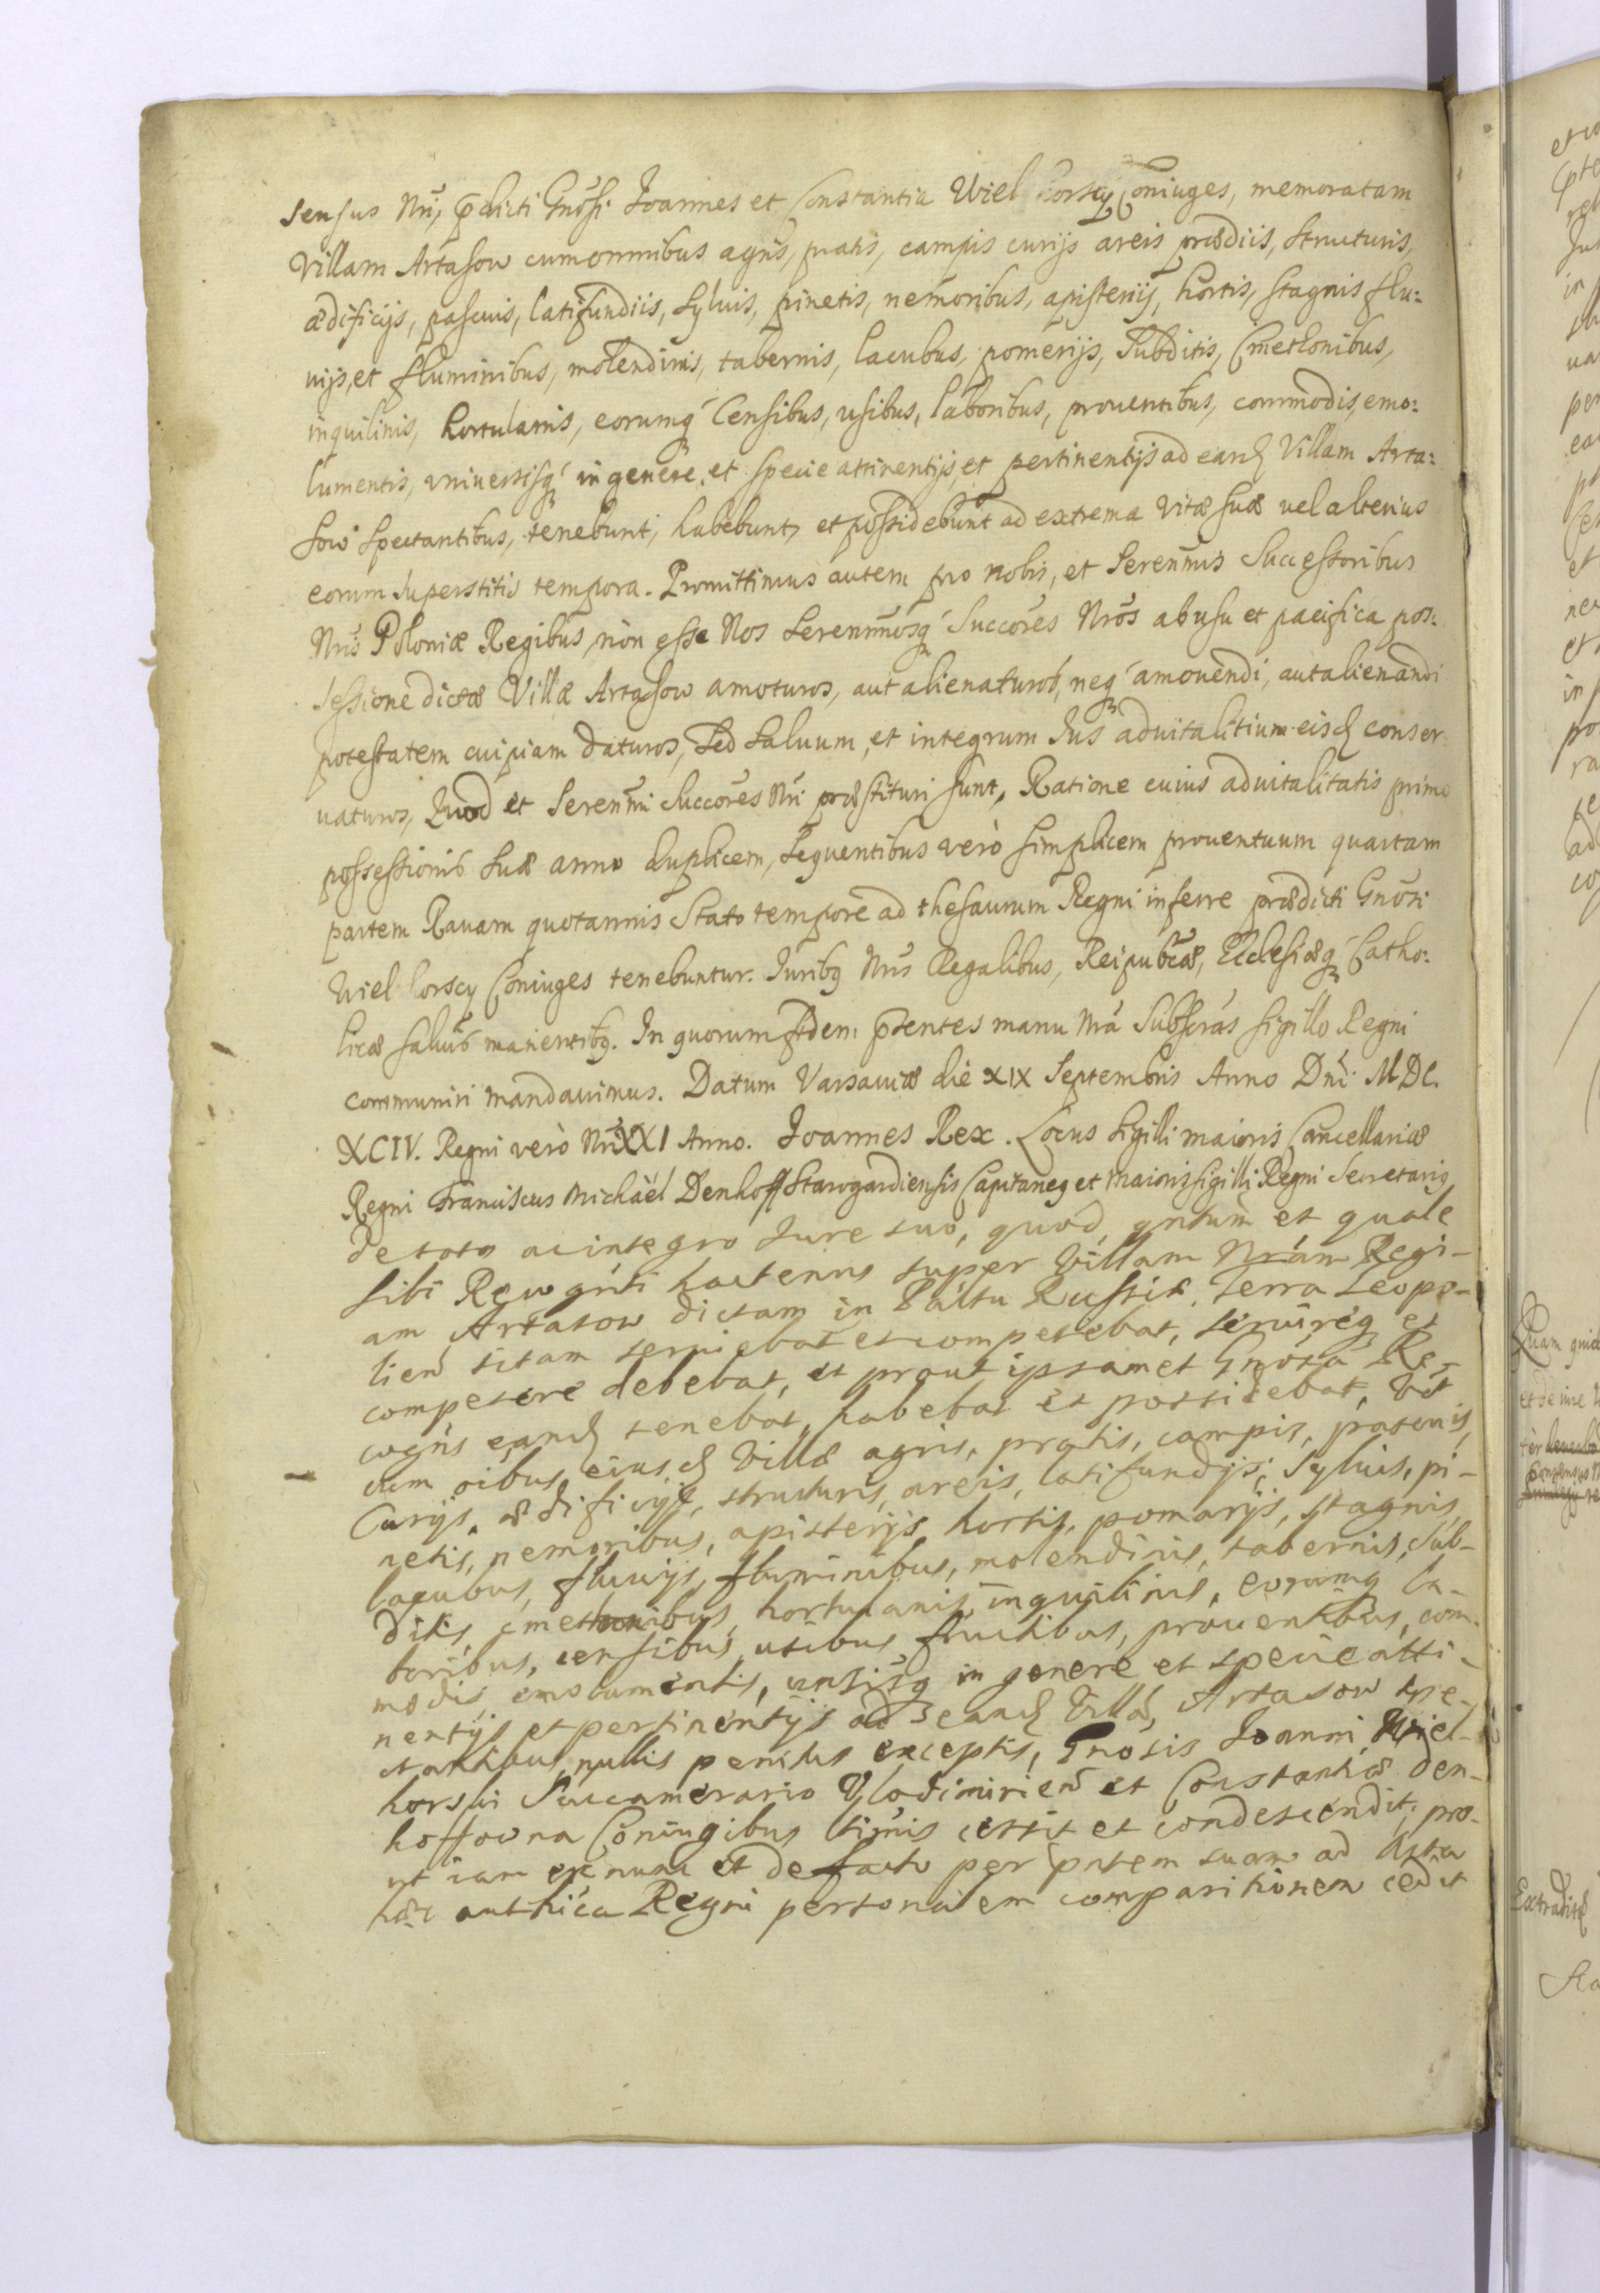 sensus Nri, p̄dicti Gnōsi Joannes et Constantia Wiel horscy Coniuges, memoratam
Villam Artasow cum omnibus agris, pratis, campis curijs areis prædiis, structuris,
ædificijs, pascuis, latifundiis, syluis, pinetis, nemoribus, apisterijs, hortis, stagnis flu:
uijs, et fluminibus, molendinis, tabernis, lacubus, pomerijs, Subditis, Cmethonibus,
inquilinis, hortulanis, eorumq́ Censibus, usibus, laboribus, prouentibus, commodis, emo:
lumentis, vniuersisq́ in genere, et specie attinentijs, et pertinentijs ad eand Villam Arta:
sow spectantibus, tenebunt, habebunt, et possidebunt ad extrema vitæ suæ uel alterius
eorum superstitis tempora. Promittimus autem pro nobis, et Serenm̄is Successoribus
Nrīs Poloniæ Regibus, non esse Nos Serenm̄osq́ Succōres Nrōs ab usu et pacifica pos:
sessione dictæ Villæ Artasow amoturos, aut alienaturos, neq́ amouendi, aut alienandi
potestatem cuipiam daturos, Sed saluum, et integrum Jus aduitalitium eisd conser
uaturos, Quod et Serenm̄i Succōres Nrī præstituri sunt, Ratione cuius aduitalitatis primo
possessionis suæ anno duplicem, sequentibus verò simplicem prouentuum quartam
partem Rauam quotannis stato tempore ad thesaurum Regni inferre prædicti Gnōsi
Wiel horscy Coniuges tenebuntur. Juribq Nrīs Regalibus, Reipubcæ, Ecclesiæq́ Catho:
licæ saluis manentibq. In quorum fidem p̄sentes manu Nrā Subscrās sigillo Regni
communiri mandauimus. Datum Varsauiæ die XIX Septembris Anno Dni MDC.
XCIV. Regni verò Nrī XXI Anno. Joannes Rex. Locus Sigilli maioris Cancellariæ
Regni Franciscus Michaël Denhoff Starogardiensis Capitaneq et Maioris Sigilli Regni Secretariq
de toto ac integro Jure suo, quod, qntum et quale
sibi Recognti hactenus super Villam Nrām Regi-
am Artasow dictam in Pāltu Russiæ, Terra Leopo-
lien sitam seruiebat et competebat, seruireq́ et
competere debebat, et prout ipsamet Gnōsa Re-
cogns eand tenebat, habebat et possidebat, Vet
cum oibus eiusd Villæ agris, pratis, campis, pascuis,
Curijs, ædificijs, structuris, areis, latifundijs, Syluis, pi-
netis, nemoribus, apisterijs hortis, pomarijs, stagnis,
lacubus, fluuijs, fluminibus, molendinis, tabernis, Sub-
ditis, cmethonibus, hortulanis, inquilinis, eorumq la-
boribus, censibus, usibus fructibus, prouentibus, com-
modis, emolumentis, vnsisq in genere et specie atti-
nentijs et pertinentijs ad eand Villā, Artasow spe-
ctantibus, nullis penitus exceptis, Gnosis Joanni Wiel-
horski Succamerario Vlodimirien et Constantiæ Den-
hoffowna Coniugibus ltimis cessit et condescendit; pro-
ut iam ex nunc et de facto per pntem suam ad Acta
hæc authca Regni personalem comparitionem cedit